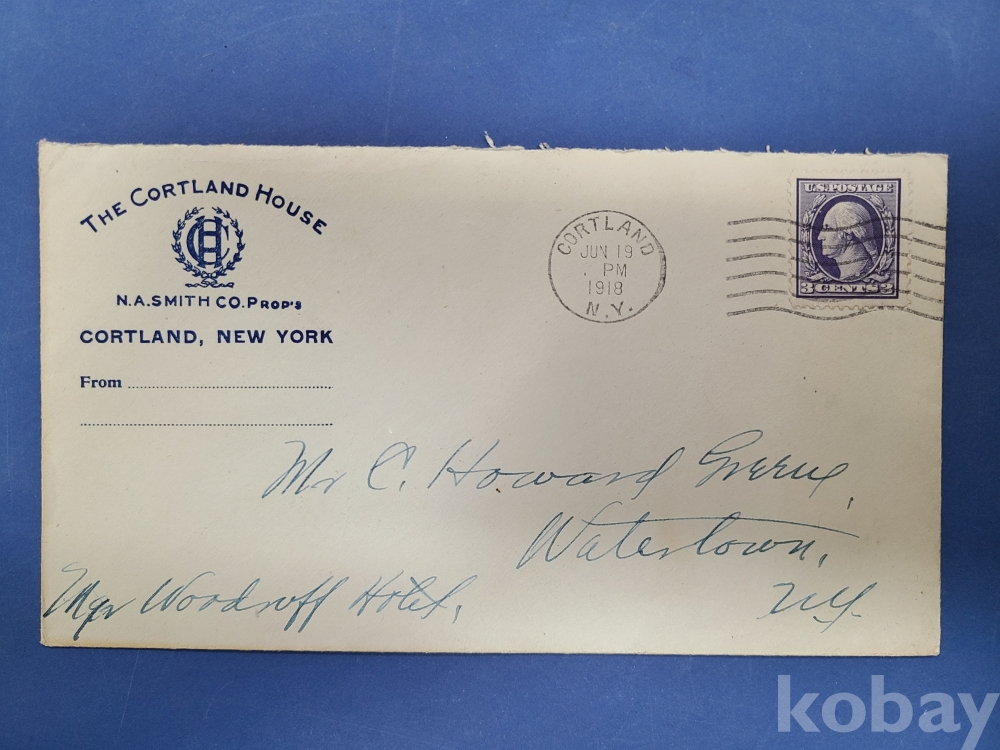 THE CORTLAND HOUSE
CH
N.A. SMITH CO. PROP'S
CORTLAND, NEW YORK
From
CORTLAND
JUN 19
PM
1918
N.Y.
U.S. POSTAGE
3 CENTS 3
Mr C. Howard
Watertown,
Mgr Woodruff Hotel,
N.Y.
kobay